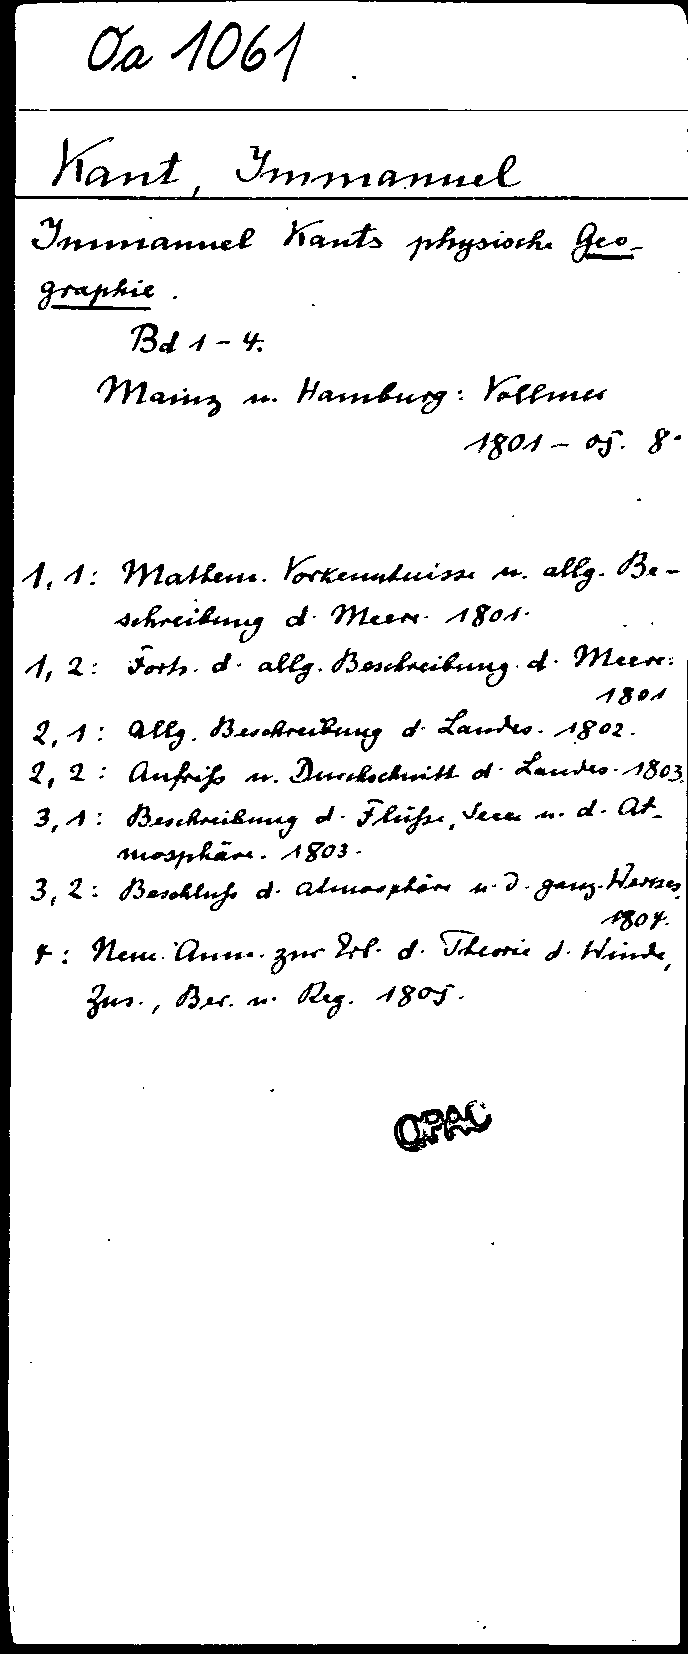 Oa 1061
Kant, Immanuel
Immanuel Kants physische Geo-
graphie.
Bd 1-4.
Mainz u. Hamburg: Vollmer
1801-05. 8°
1,1: Mathem. Vorkenntnisse u. allg. Be-
schreibung d. Meere. 1801.
1,2: Forts. d. allg. Beschreibung d. Meere.
1801
2,1: Allg. Beschreibung d. Landes. 1802.
2,2: Aufriß u. Durchschnitt d. Landes. 1803.
3,1: Beschreibung d. Flüße, Seen u. d. At-
mosphäre. 1803.
3,2: Beschluß d. Atmosphäre u. d. ganz. Werkes.
1804.
4: Neue Anm. zur Erl. d. Theorie d. Winde,
Zus., Ber. u. Reg. 1805.
OPAC